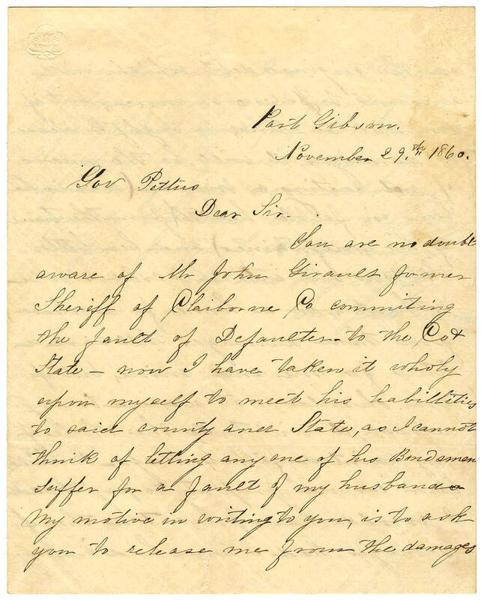 Port Gibson.
November 29.th 1860.
Gov Pettus
Dear Sir.
You are no doubt
aware of Mr John Girault former
Sheriff of Claiborne Co commiting
the fault of Defaulter to the Co &
State – now I have taken it wholy
upon myself to meet his liabillities
to said county and State, as I cannot
think of letting any one of his Bondsmen
suffer for a fault of my husbands
My motive in writing to you, is to ask
you to release me from the damages